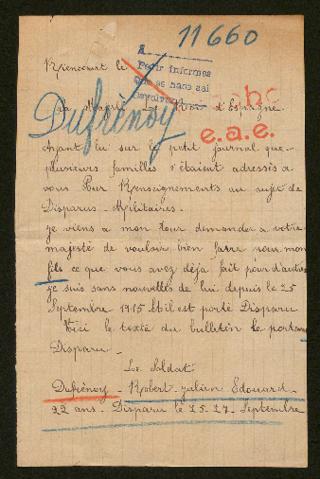 11660
A
Pedir informes
Riencourt le
Que se hace así
Sa Majesté Le Roi d'Espagne
Dufrénoy
e.a.e.
Ayant lu sur le petit journal que
plusieurs familles s'étaient adressés a
vous Pour Renseignements au sujet de
Disparus - Militaires.
je viens a mon tour demander a votre
majesté de vouloir bien faire pour mon
fils ce que vous avez déja fait pour d'autres
je suis sans nouvelles de lui depuis le 25
Septembre 1915 et il est porté Disparu
Voici le texte du bulletin le portant
Disparu
Le Soldat
Dufrénoy - Robert Julien Edouard -
22 ans - Disparu le 25.27. Septembre